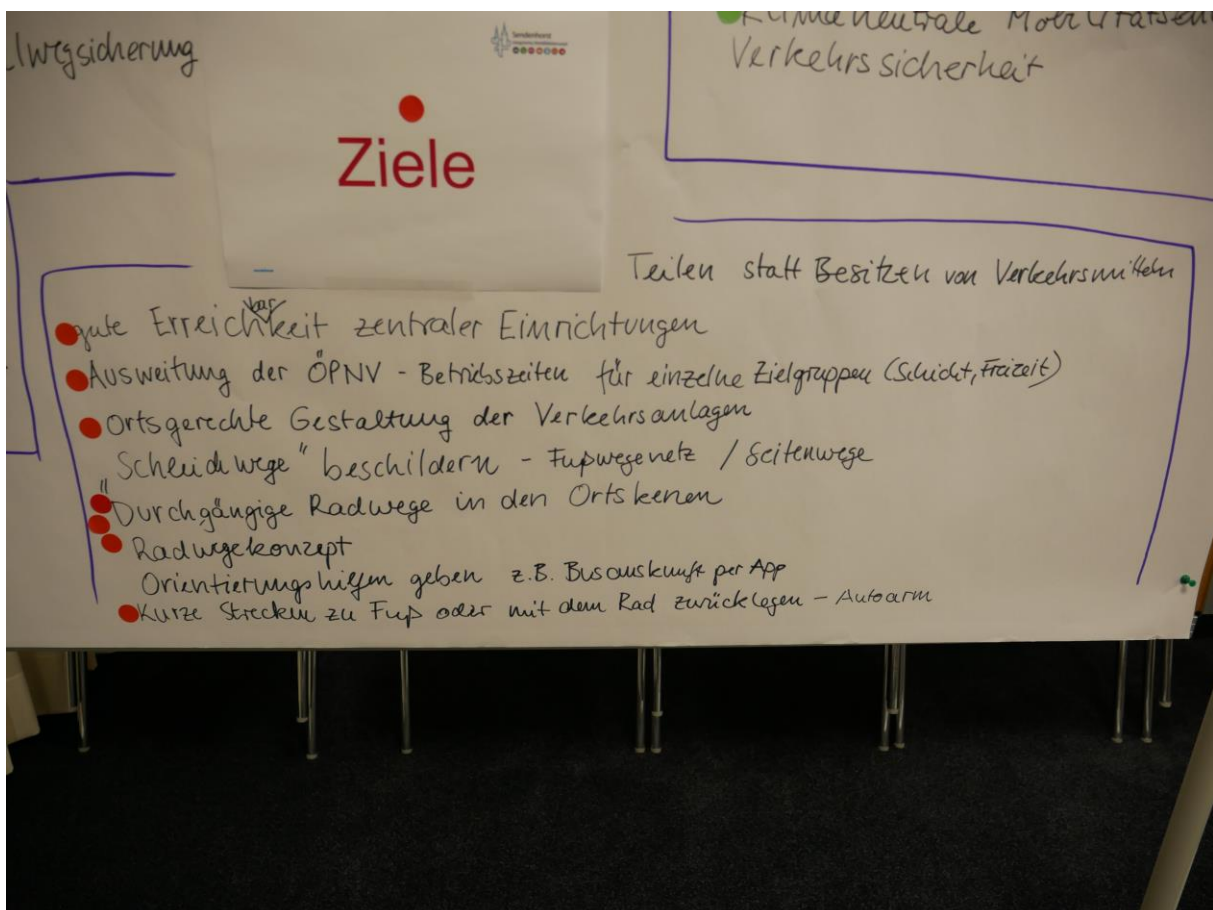 lwegsicherung
Sendenhorst
Ziele
Klimaneutrale
Verkehrssicherheit
Teilen statt Besitzen von Verkehrsmitteln
gute Erreichbarkeit zentraler Einrichtungen
Ausweitung der ÖPNV - Betriebszeiten für einzelne Zielgruppen (Schicht, Freizeit)
Ortsgerechte Gestaltung der Verkehrsanlagen
"Schleichwege" beschildern - Fußwegenetz / Seitenwege
Durchgängige Radwege in den Ortskernen
Radwegekonzept
Orientierungshilfen geben z.B. Busauskunft per App
Kurze Strecken zu Fuß oder mit dem Rad zurücklegen - Autoarm